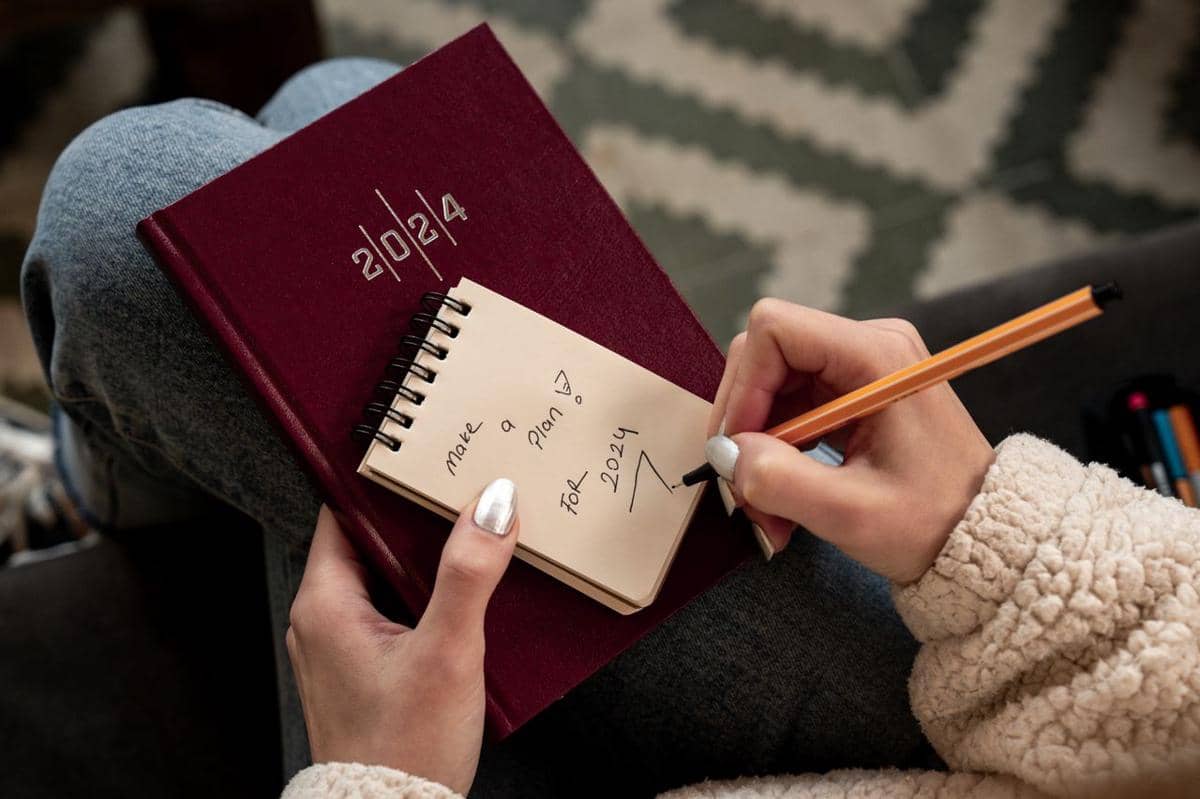 2024
Make a Plan!
FOR 2024